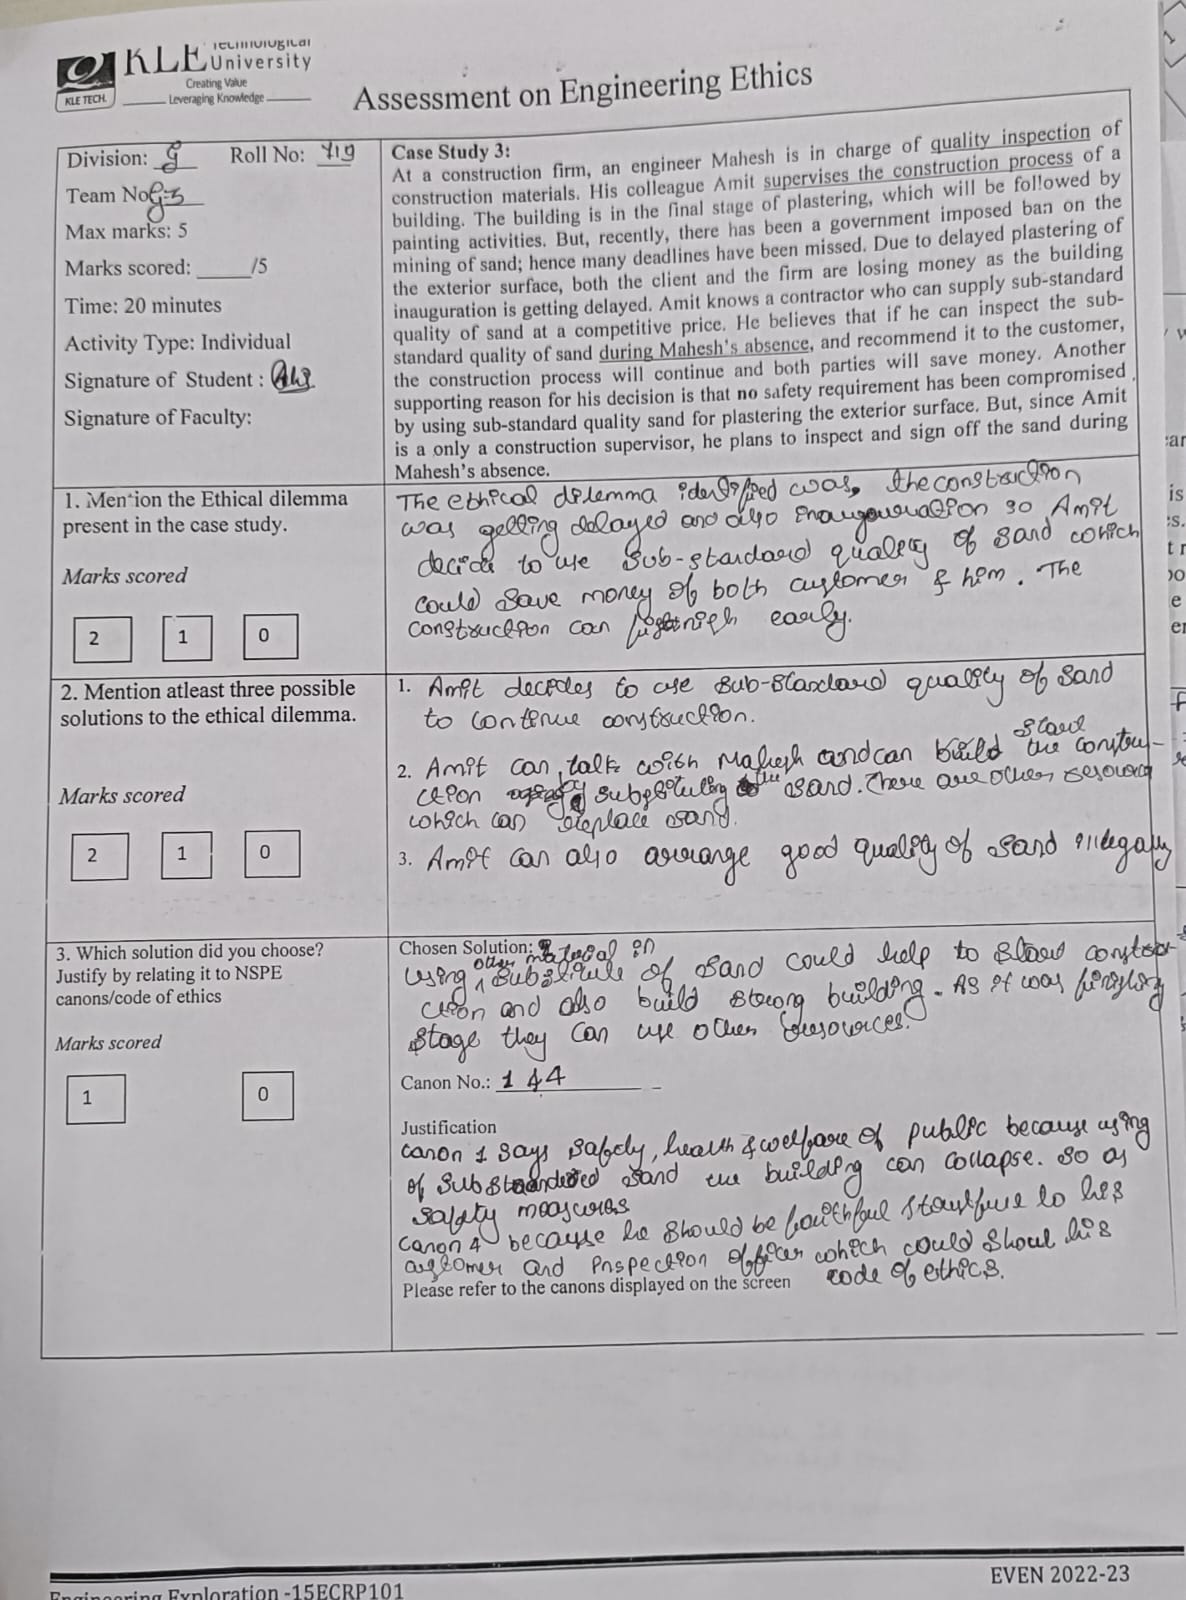 Technological
KLE University
Creating Value
Leveraging Knowledge
KLE TECH.
Assessment on Engineering Ethics
Division: G Roll No: 719
Team No G-3
Max marks: 5
Marks scored: _____/5
Time: 20 minutes
Activity Type: Individual
Signature of Student :
Signature of Faculty:
Case Study 3:
At a construction firm, an engineer Mahesh is in charge of quality inspection of
construction materials. His colleague Amit supervises the construction process of a
building. The building is in the final stage of plastering, which will be followed by
painting activities. But, recently, there has been a government imposed ban on the
mining of sand; hence many deadlines have been missed. Due to delayed plastering of
the exterior surface, both the client and the firm are losing money as the building
inauguration is getting delayed. Amit knows a contractor who can supply sub-standard
quality of sand at a competitive price. He believes that if he can inspect the sub-
standard quality of sand during Mahesh's absence, and recommend it to the customer,
the construction process will continue and both parties will save money. Another
supporting reason for his decision is that no safety requirement has been compromised
by using sub-standard quality sand for plastering the exterior surface. But, since Amit
is a only a construction supervisor, he plans to inspect and sign off the sand during
Mahesh's absence.
1. Mention the Ethical dilemma
present in the case study.
Marks scored
2 1 0
The ethical dilemma identified was, the construction
was getting delayed and also inaugouration so Amit
decide to use sub-standard quality of sand which
could save money of both customer & him. The
construction can finish early.
2. Mention atleast three possible
solutions to the ethical dilemma.
Marks scored
2 1 0
1. Amit decides to use sub-standard quality of sand
to continue construction.
2. Amit can talk with Mahesh and can start the constru-
ction by substituting the sand. There are other resources
which can replace sand.
3. Amit can also arrange good quality of sand illegally
3. Which solution did you choose?
Justify by relating it to NSPE
canons/code of ethics
Marks scored
1 0
Chosen Solution: 2
using other material in substitute of sand could help to start constru-
ction and also build strong building. As it was finishing
stage they can use other resources.
Canon No.: 1 & 4
Justification
canon 1 says safety, health & welfare of public because using
of substandered sand the building can collapse. so as
safety measures
canon 4 because he should be faithful to his
customer and inspection officer which could his
code of ethics.
Please refer to the canons displayed on the screen
EVEN 2022-23
Engineering Exploration -15ECRP101